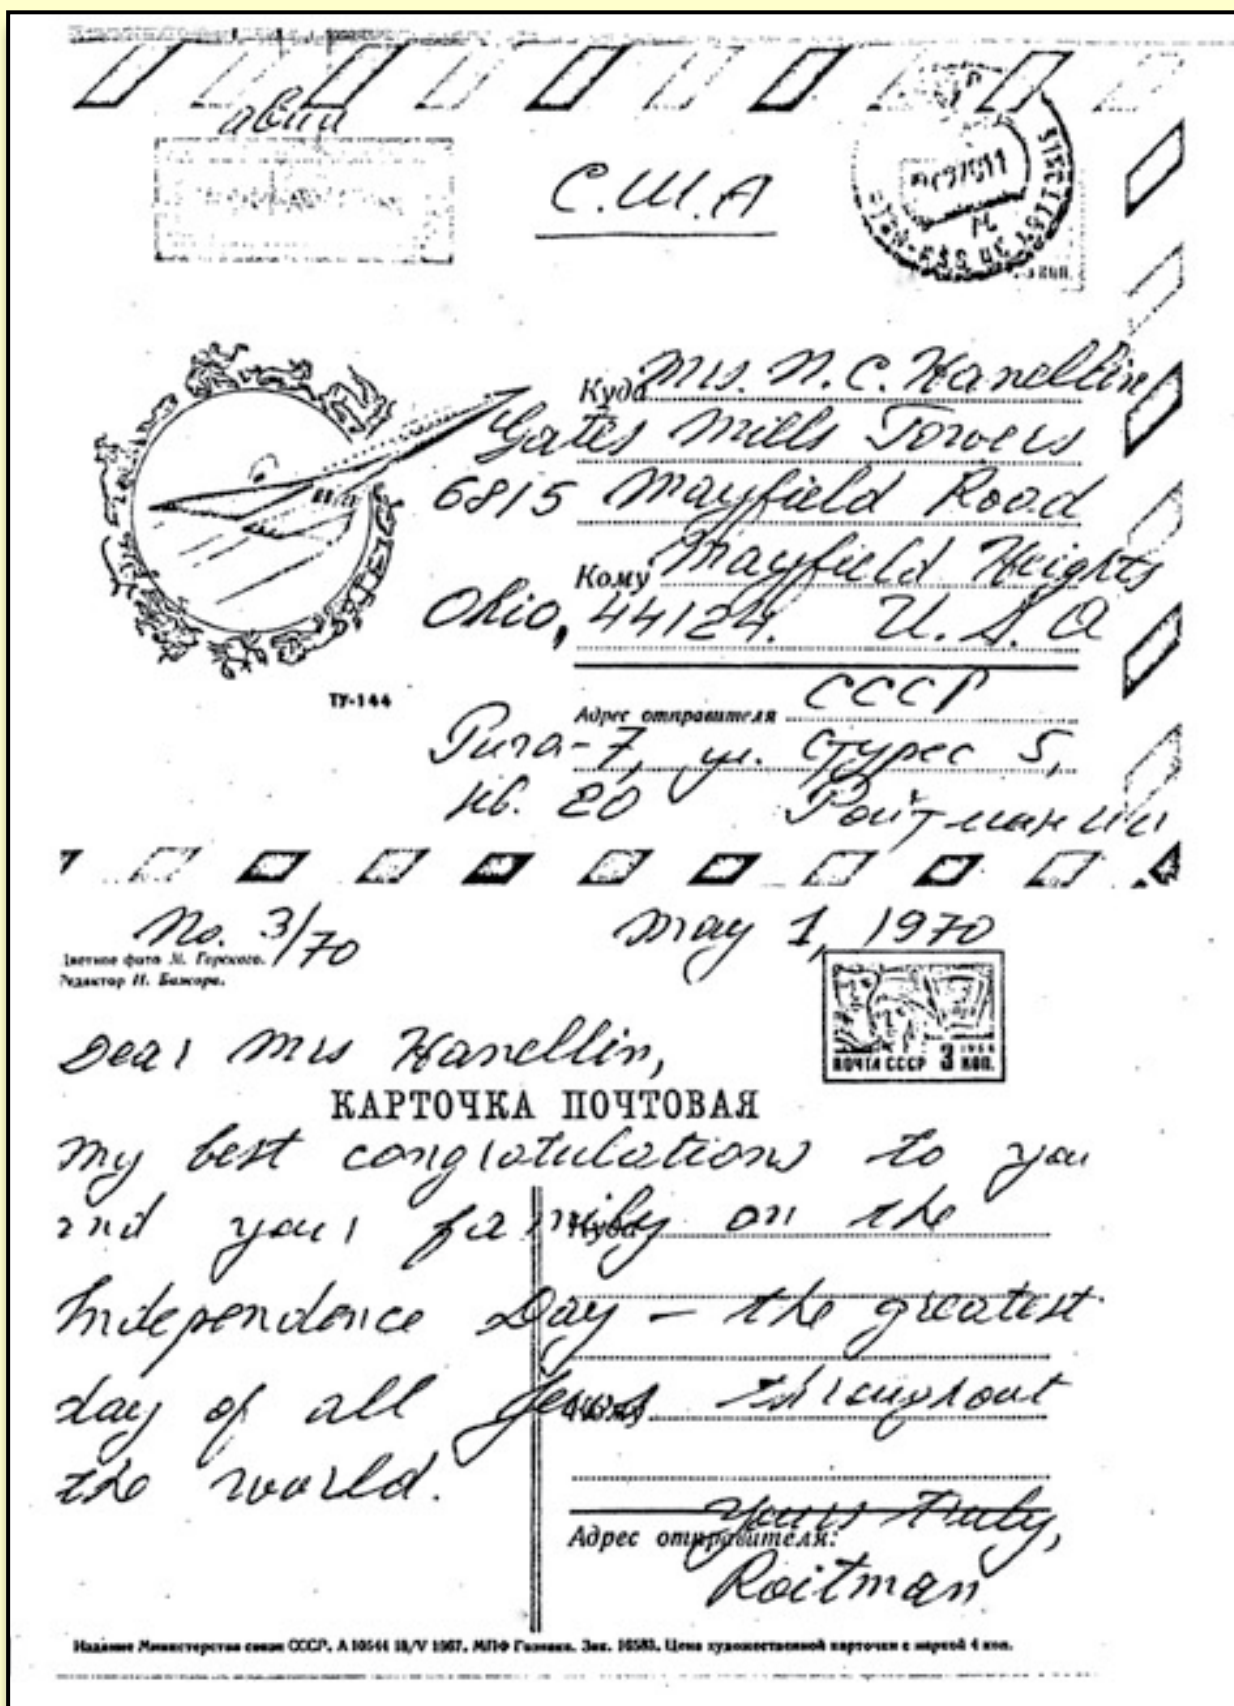 авиа
С.Ш.А
Куда Mrs. N. C. Hanellin
Gates Mills Towers
6815 Mayfield Road
Кому Mayfield Heights
Ohio, 44124. U. S. A
ТУ-144
Адрес отправителя СССР
Рига-7, ул. Стурес 5,
кв. 20 Ройтман
No. 3/70 May 1, 1970
Цветное фото М. Горского.
Редактор И. Бажора.
ПОЧТА СССР 3 КОП.
Dear Mrs Hanellin,
КАРТОЧКА ПОЧТОВАЯ
my best congratulations to you
and your family on the
Куда
Independence Day – the greatest
day of all Jews throughout
the world.
Yours truly,
Адрес отправителя:
Roitman
Издание Министерства связи СССР. А 10544 18/V 1967. МПФ Гознака. Зак. 16583. Цена художественной карточки с маркой 4 коп.